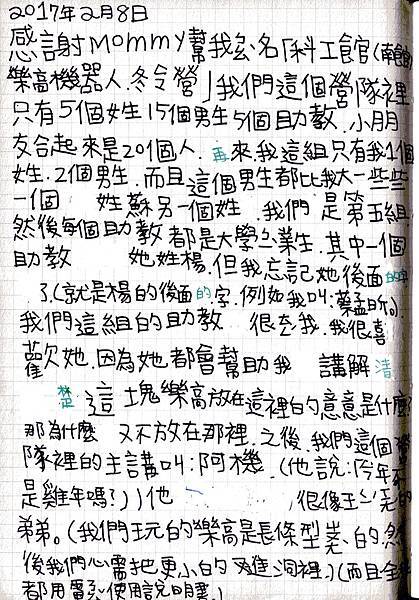 2017年2月8日
感謝Mommy幫我 名「科工食官(南
樂高機器人.冬令營」我們這個營隊裡
只有5個女生15個男生5個助教.小朋
友合起來是20個人.再來我這組只有我1個
女生.2個男生.而且這個男生都比我大一些些
一個 姓蘇另一個姓 .我們是第五組.
然後每個助教都是大學 業生.其中一個
助教 她姓楊.但我忘記她後面的字
了.(就是楊的後面的字.例如我叫:
我們這組的助教 很 我.我很喜
歡她.因為她都會幫助我 講解清
楚這塊樂高放在這裡的意意是什麼?
那為什麼 又不放在那裡.之後.我們這個
隊裡的主講叫:阿機.(他說:今年
是雞年嗎?))他 很像王 的
弟弟。(我們玩的樂高是長條型 的.然
後我們必需把更小的 進洞裡.)(而且全
都用 使用說明 .)